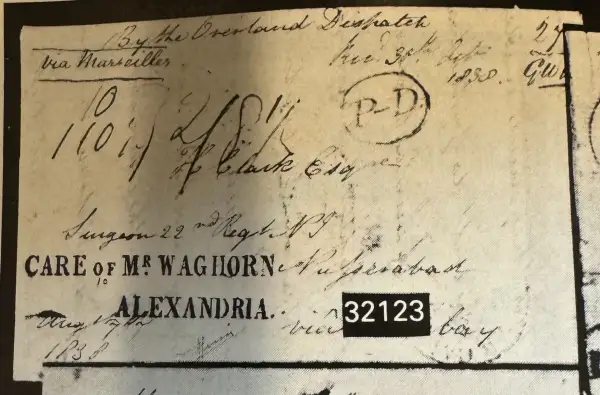 By the Overland Dispatch
via Marseilles
27
Recd. 30th Sept
1838
P-D
10
2/8½
H Clark Esqre
Surgeon 22nd Regt. N I
CARE OF MR WAGHORN
Nusserabad
ALEXANDRIA.
via
32123
bay
1838